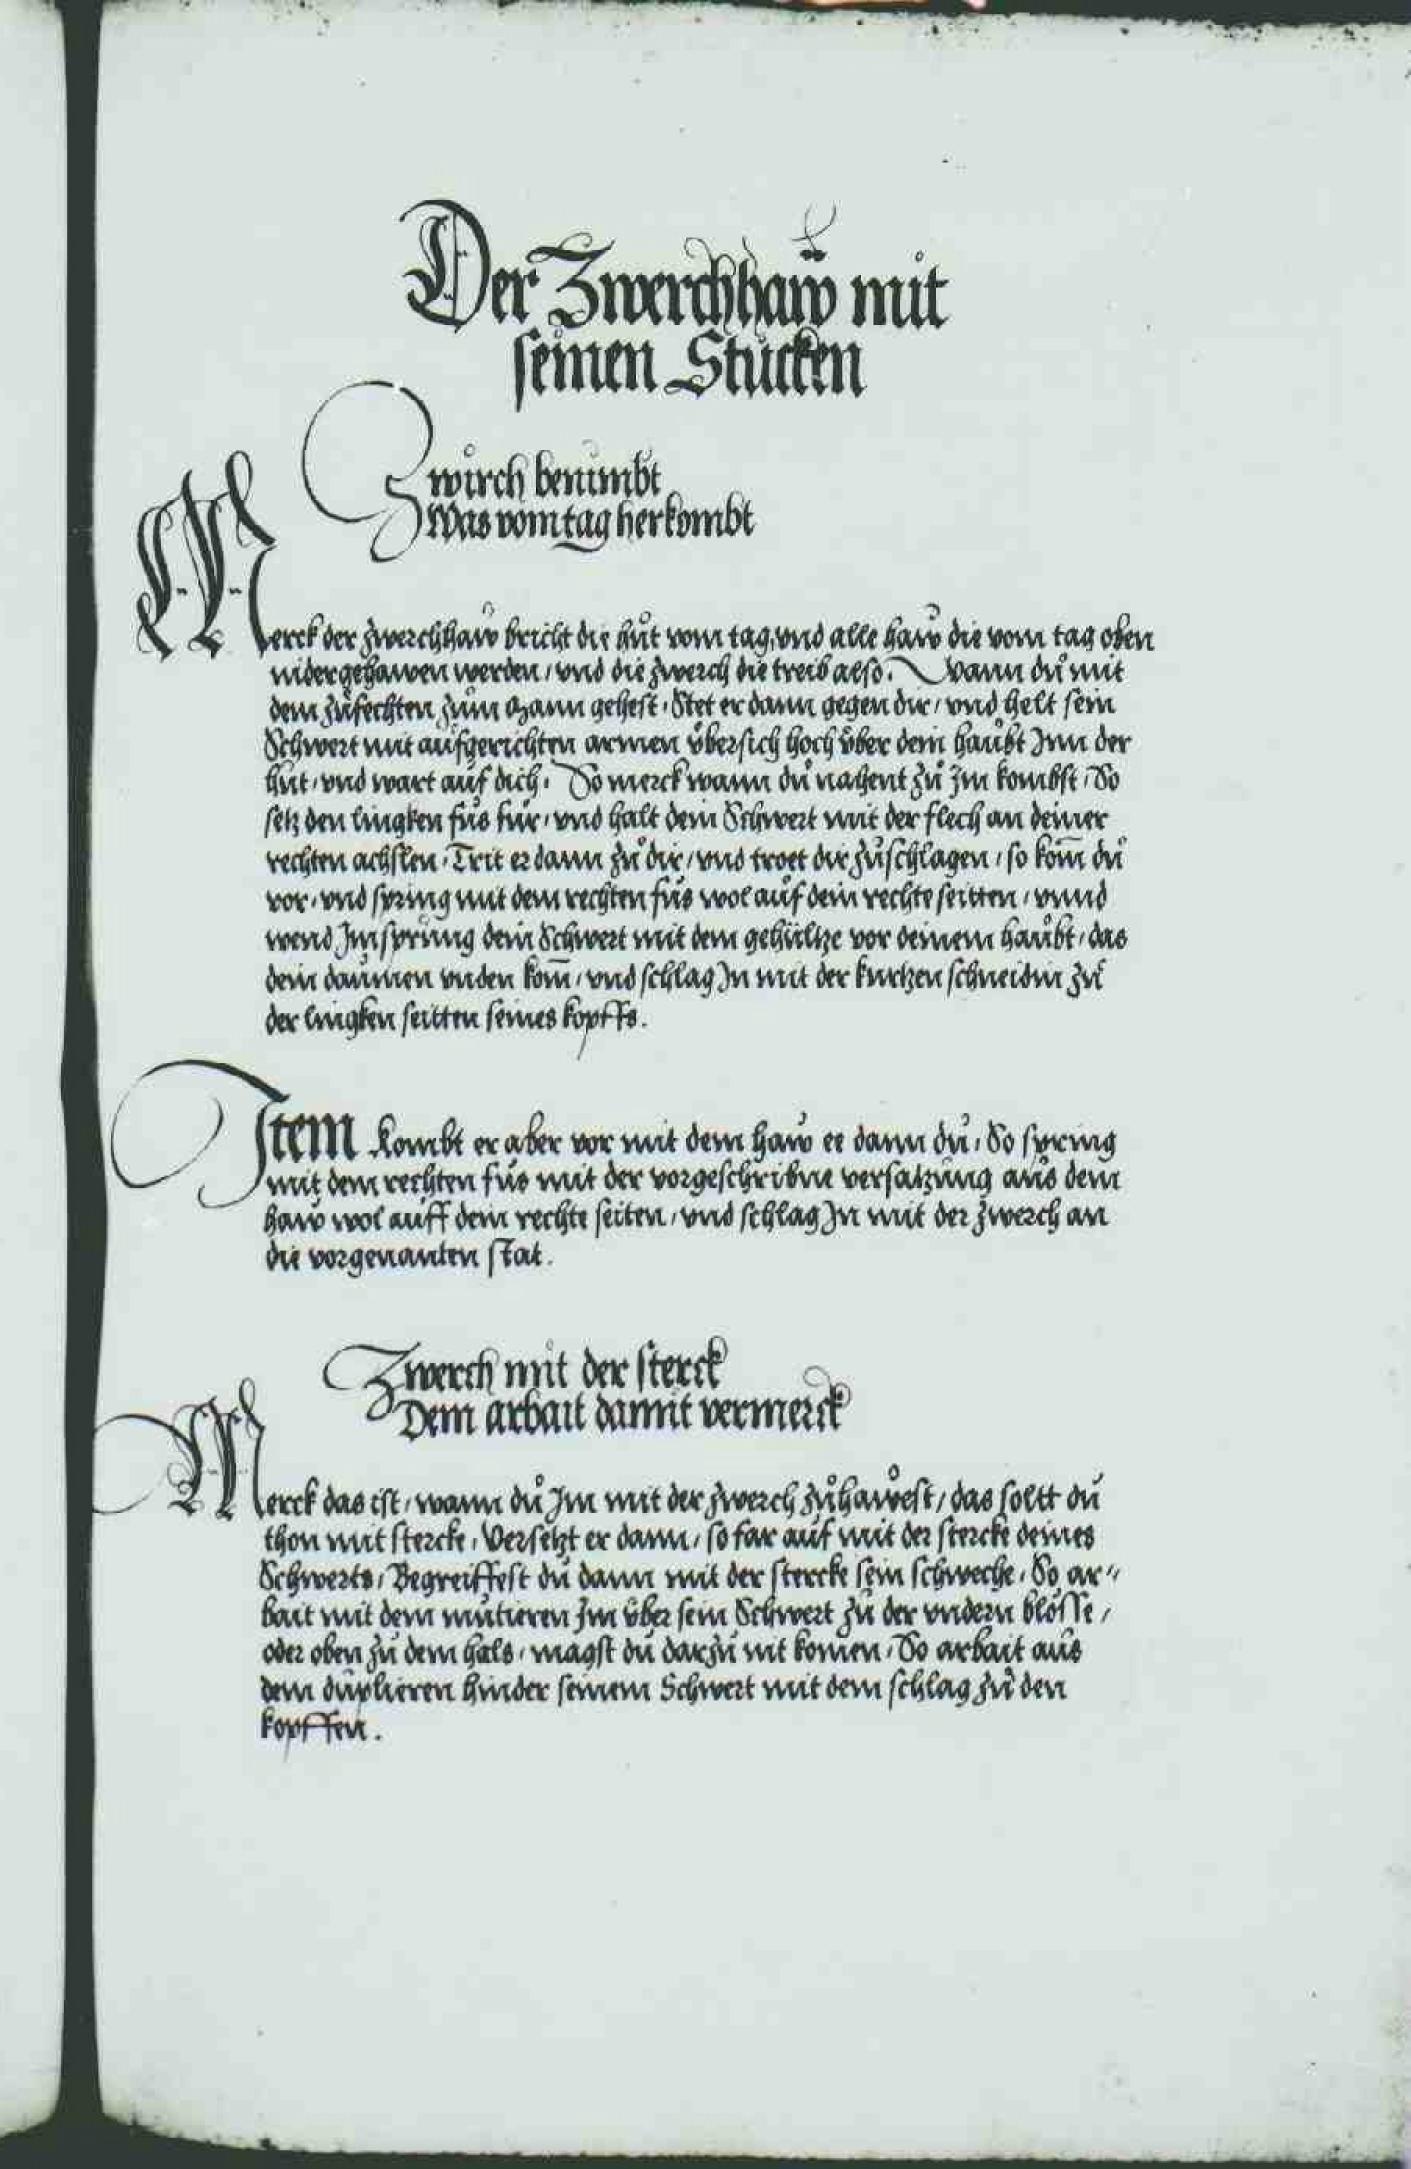 Der Zwerchhaw̎ mit
seinen Stucken
Zwirch benimbt
Was vom tag herkombt
Merck der zwerchhaw bricht die hůt vom tag, vnd alle haw die vom tag oben
nider gehawen werden / vnd die zwerch die treib also. Wann du mit
dem zůfechten zům Mann gehest. Stet er dann gegen dir / vnd helt sein
Schwert mit aufgerichten armen v̊bersich hoch v̊ber dem haŭbt Inn der
hůt / vnd wart auf dich. So merck wann du nahent zů Im kombst / So
setz den lingken fůs fůr / vnd halt dein Schwert mit der flech an deiner
rechten achslen / Trit er dann zů dir / vnd troet dir zůschlagen / so kom̄ dů
vor / vnd spring mit dem rechten fůs wol aůf dein rechte seitten / vnnd
wend Im sprůng dein Schwert mit dem gehůltze vor deinem haůbt / das
dein daůmen vnden kom̄ / vnd schlag In mit der kurtzen schneidin zů
der lingken seitten seines kopffs.
Item Kombt er aber vor mit dem haw ee dann dů / So spring
mit dem rechten fůs mit der vorgeschribne versatzung aůs dem
haw wol auff dein rechte seiten / vnd schlag In mit der zwerch an
die vorgenanten stat.
Zwerch mit der sterck
Dem arbait damit vermerck
Merck das ist / wann dů Im mit der zwerch zůhawest / das soltt du
thon mit stercke / Versetzt er dann / so far aůf mit der stercke deines
Schwerts / Begreiffest dů dann mit der stercke sein schweche / So ar"
bait mit dem můtieren Im v̊ber sein Schwert zů der vndern blösse /
oder oben zů dem hals / magst dů darzů nit komen / So arbait aůs
dem důplieren hinder seinem Schwert mit dem schlag zů den
kopffen.